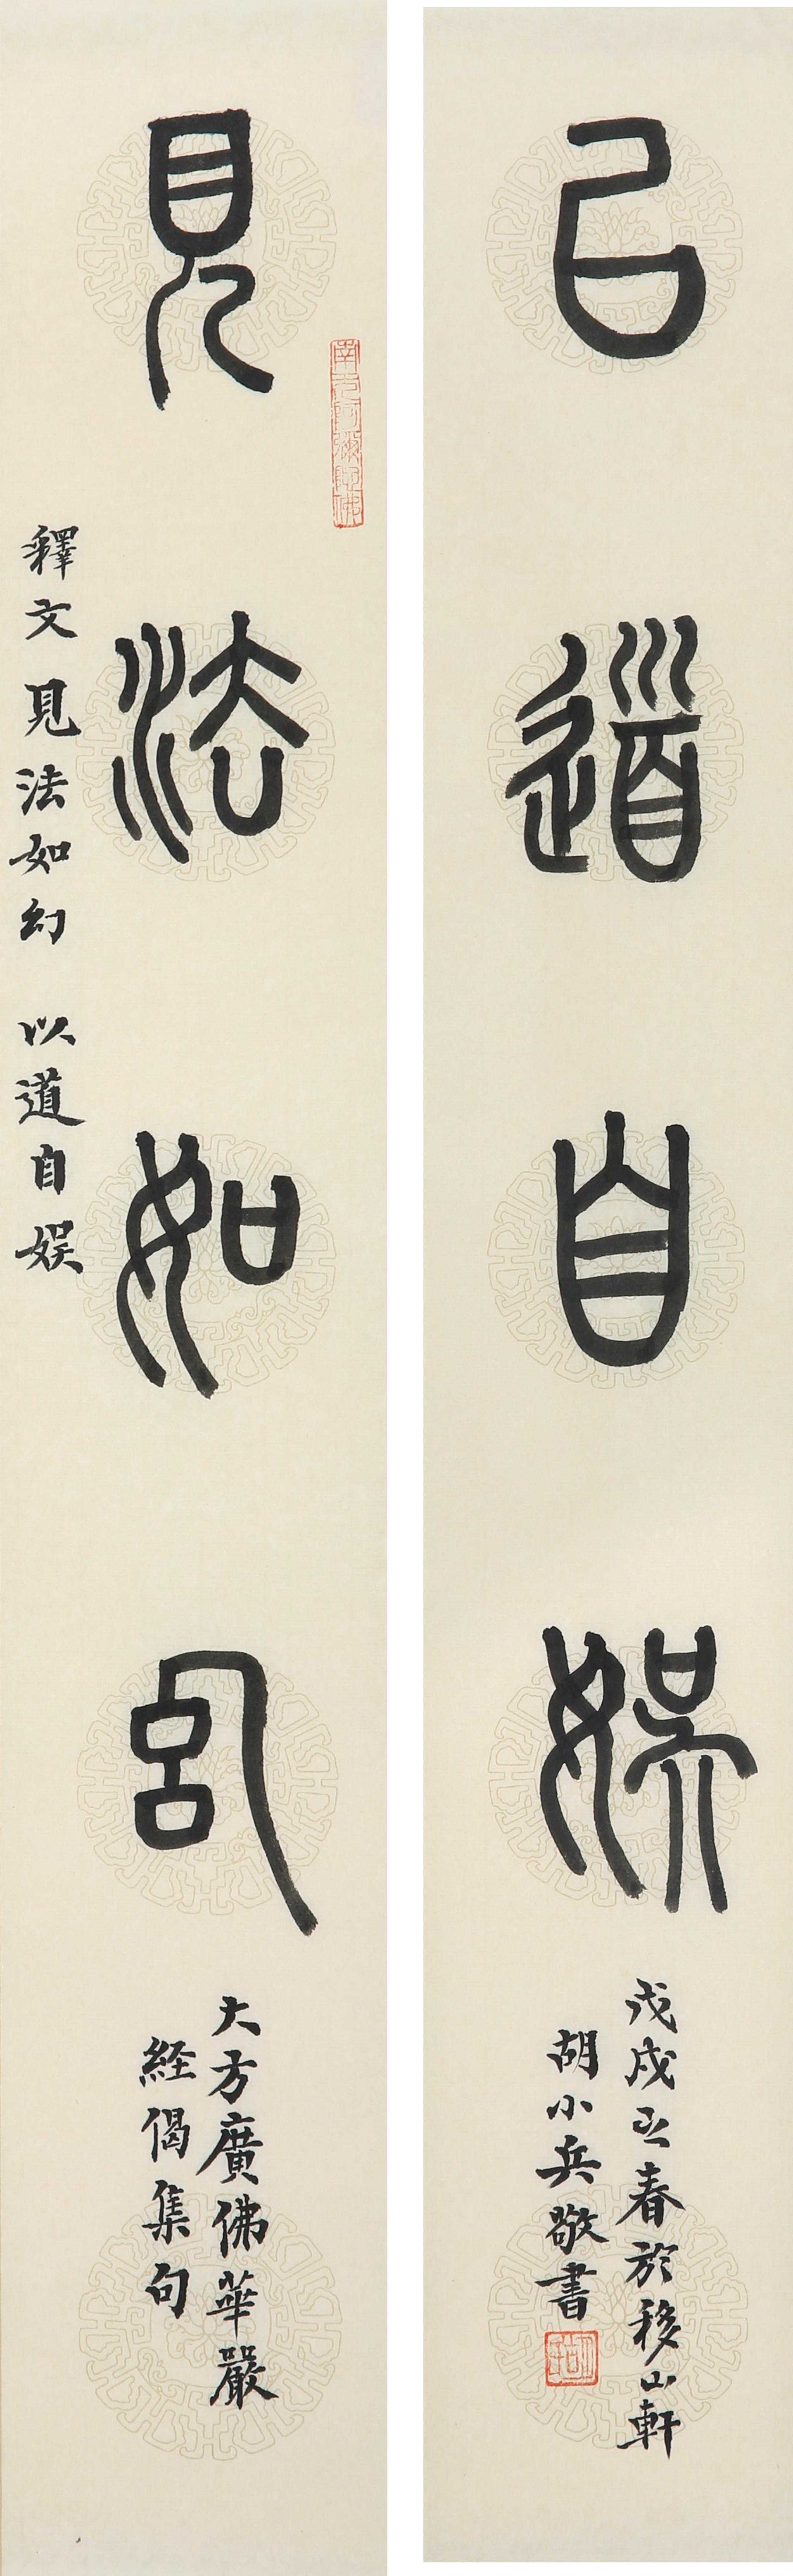 見法如幻
南无阿彌陀佛
大方廣佛華嚴
経偈集句
釋文 見法如幻 以道自娛
以道自娛
戊戌之春於移山軒
胡小兵敬書